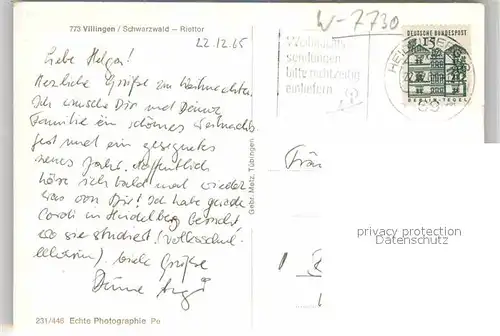 773 Villingen / Schwarzwald — Riettor
22.12.65
W-7730
Liebe Helga!
Herzliche Grüße zu Weihnachten.
Ich wünsche Dir und Deiner
Familie ein schönes Weihnachts-
fest und ein gesegnetes
neues Jahr. Hoffentlich
höre ich bald mal wieder
was von Dir! Ich habe gerade
in Heidelberg besucht
wo sie studiert (Volksschul-
lehrerin). Viele Grüße
Deine
231/446 Echte Photographie
Gebr. Metz, Tübingen
sendungen
bitte rechtzeitig
einliefern
DEUTSCHE BUNDESPOST
15
BERLIN-TEGEL
Fräu
privacy protection
Datenschutz